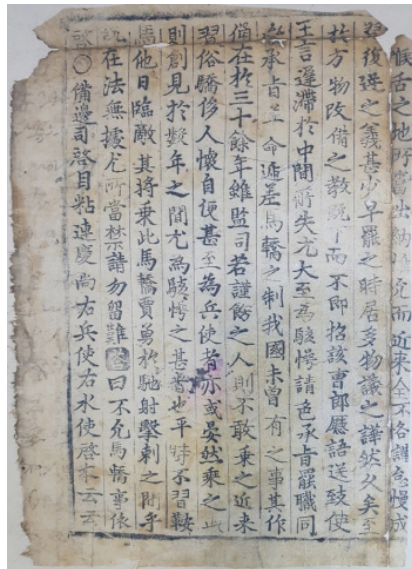 喉舌之地所當出納惟允而近來全不恪謹慢成
習復進之義甚少早罷之時居多物議之譁然久矣至
於方物改備之教既下而不即招該曹郎廳語送致使
王言遲滯於中間所失尤大至為駭愕請色承旨罷職同
之承旨 命遞差馬轎之制我國未曾有之事其作
俑在於三十餘年雖監司若謹飭之人則不敢乘之近來
習俗驕侈人懷自便甚至為兵使者亦或晏然乘之此
則創見於數年之間尤為駭愕之甚者也平時不習鞍
馬他日臨敵其將乘此馬轎賈勇於馳射擊刺之間乎
既在法無據尤所當禁請勿留難 曰不允馬轎事依
啓○備邊司啓目粘連慶尚右兵使右水使啓本云云